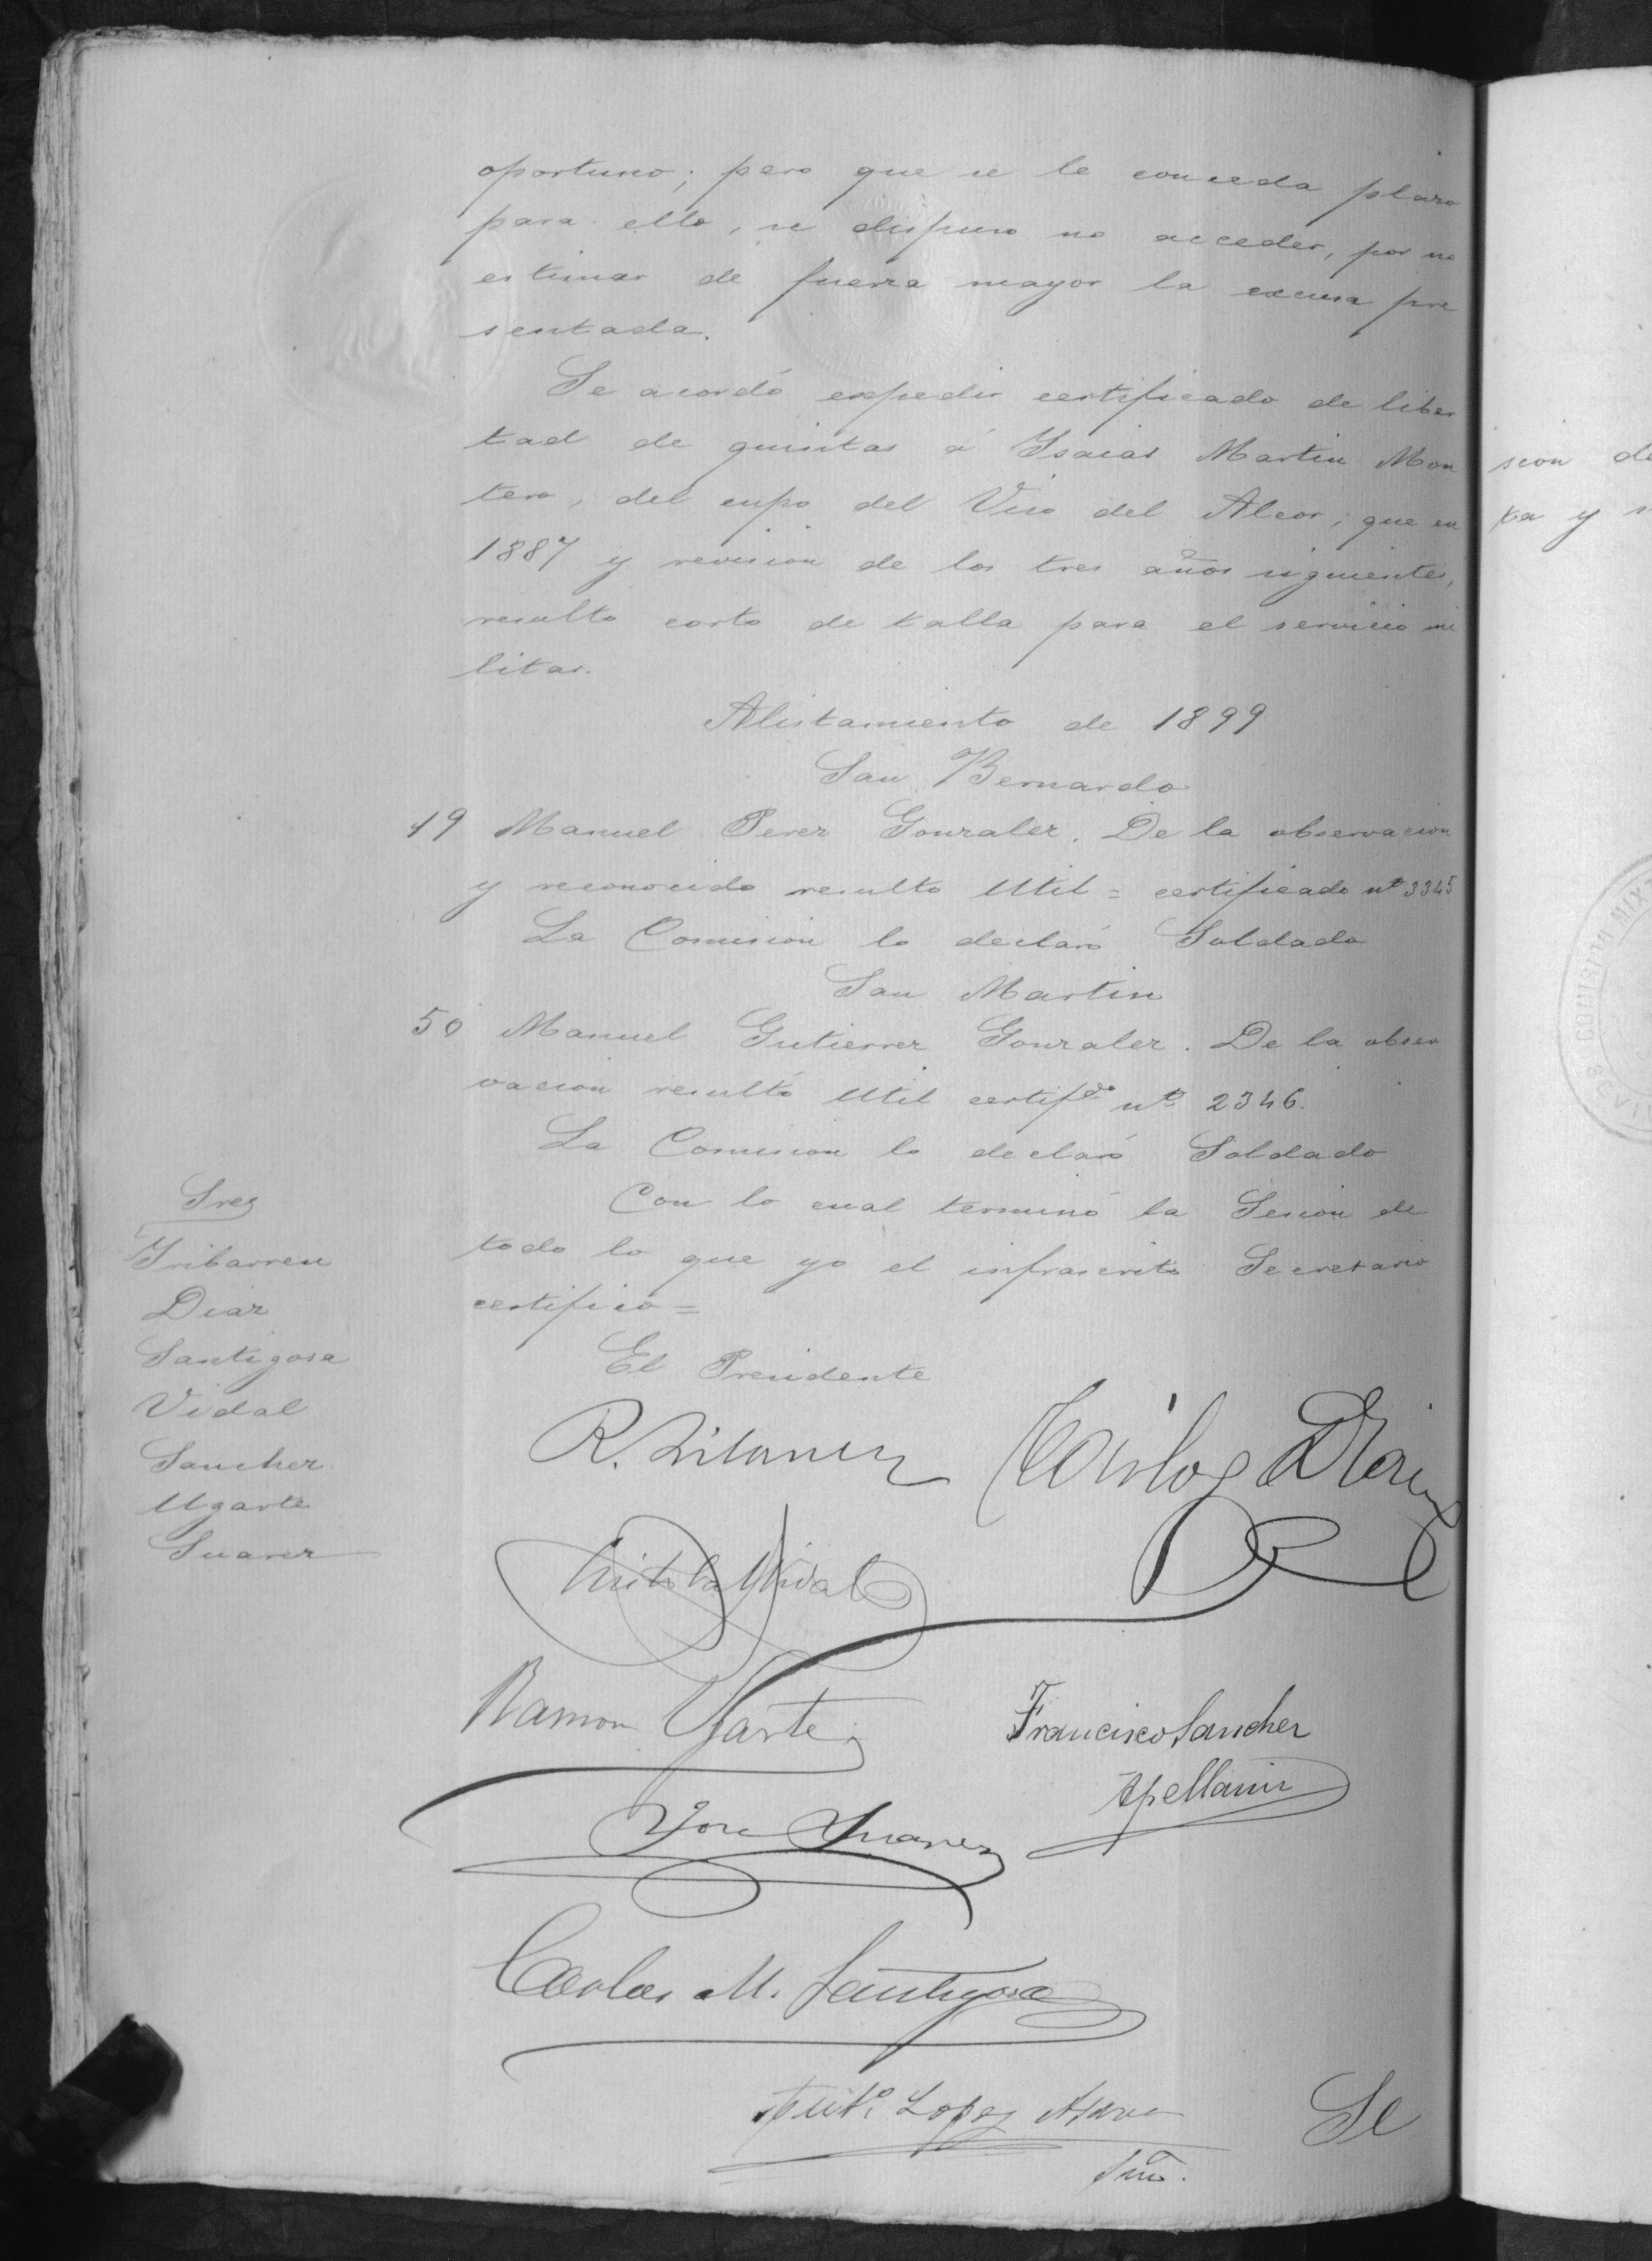 oportuno; pero que se le conceda plazo
para ello, se dispuso no acceder, por no
estimar de fuerza mayor la excusa pre
sentada.
Se acordó expedir certificado de liber
tad de quintas á Isaias Martin Mon
tero, del cupo del Viso del Alcor; que en
1887 y revision de los tres años siguientes,
resultó corto de talla para el servicio mi
litar.
Alistamiento de 1899
San Bernardo
19 Manuel Perez Gonzalez. De la observacion
y reconocido resultó Util = certificado nº 3345
La Comision lo declaró Soldado
San Martin
50 Manuel Gutierrez Gonzalez. De la obser
vacion resultó Util certifdo nº 2346.
La Comision lo declaró Soldado
Con lo cual terminó la Sesion de
todo lo que yo el infrascrito Secretario
certifico =
Sres
Iribarren
Diaz
Santigosa
Vidal
Sanchez
Ugarte
Suarez
El Presidente
R.
Carlos Diaz
Vidal
Ramon Ugarte
Francisco Sanchez
Apellaniz
Jose Suarez
Carlos M. Santigosa
Lopez
Srio.
Se
sion de
ta y
COMISION MIX